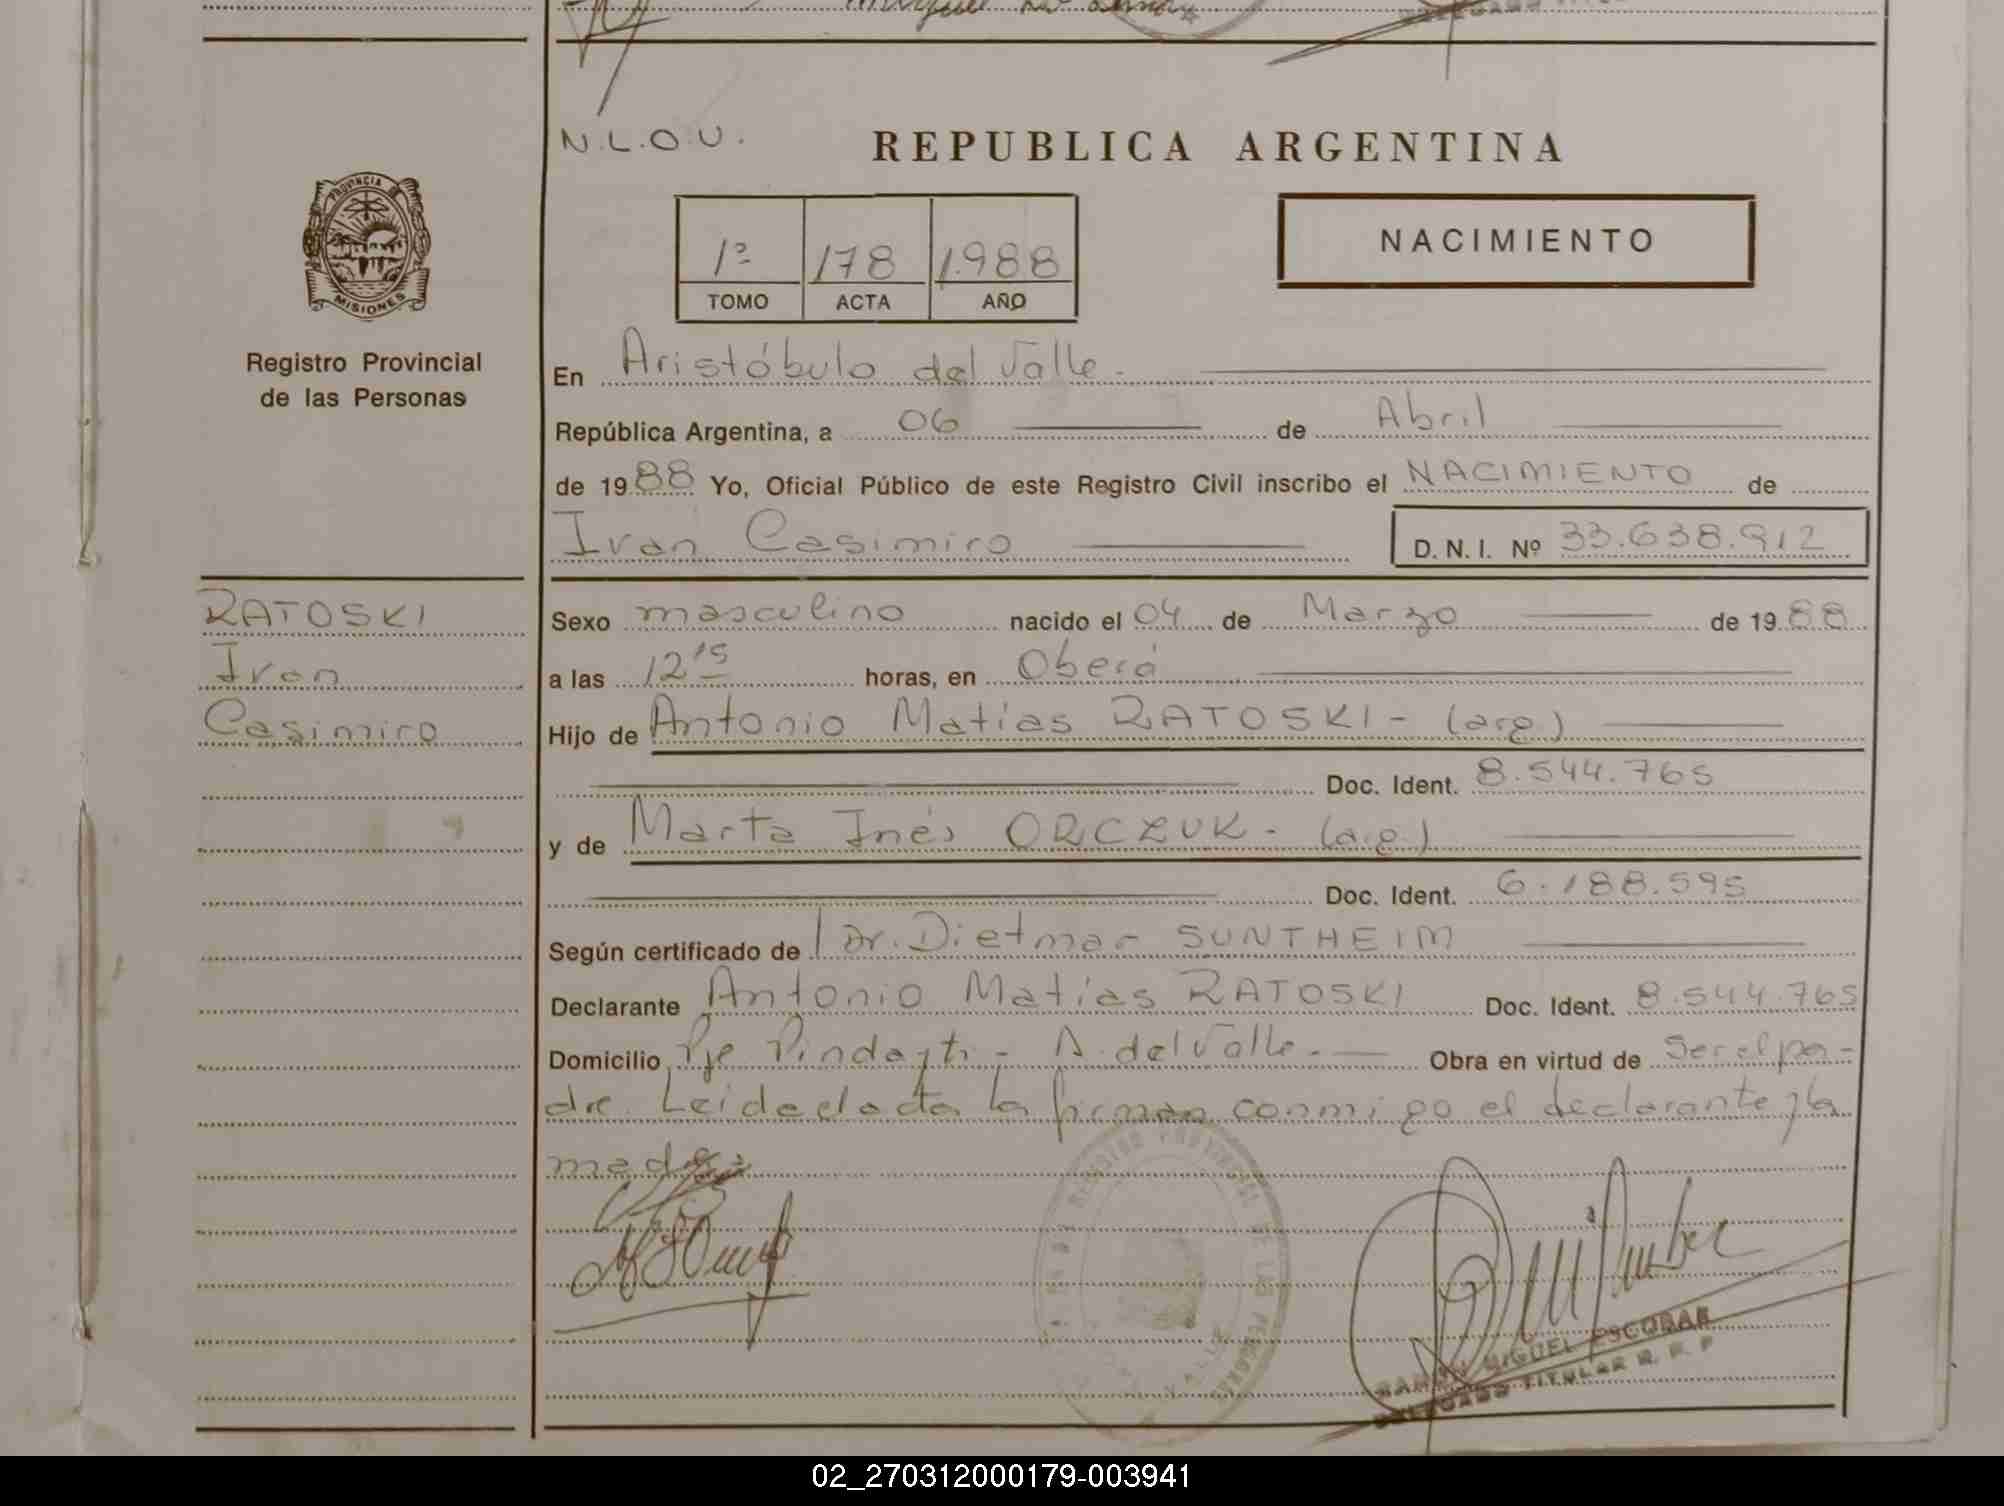 N.L.O.U.
REPUBLICA ARGENTINA
PROVINCIA DE
MISIONES
1º 178 1.988
TOMO ACTA AÑO
NACIMIENTO
Registro Provincial
de las Personas
En Aristóbulo del Valle.
República Argentina, a 06 de Abril
de 1988 Yo, Oficial Público de este Registro Civil inscribo el NACIMIENTO de
Ivan Casimiro D.N.I. Nº 33.638.912
RATOSKI
Ivan
Casimiro
Sexo masculino nacido el 04 de Marzo de 1988
a las 12 15 horas, en Oberá
Hijo de Antonio Matías RATOSKI - (arg)
Doc. Ident. 8.544.765
y de Marta Inés ORCZUK - (arg)
Doc. Ident. 6.188.595
Según certificado de Dr. Dietmar SUNTHEIM
Declarante Antonio Matías RATOSKI Doc. Ident. 8.544.765
Domicilio Pje Pindayti - A. del Valle - Obra en virtud de ser el pa-
dre. Leida el acta la firman conmigo el declarante y la
madre
REGISTRO PROVINCIAL DE LAS PERSONAS
RAMON MIGUEL ESCOBAR
DELEGADO TITULAR R. P. P
02_270312000179-003941